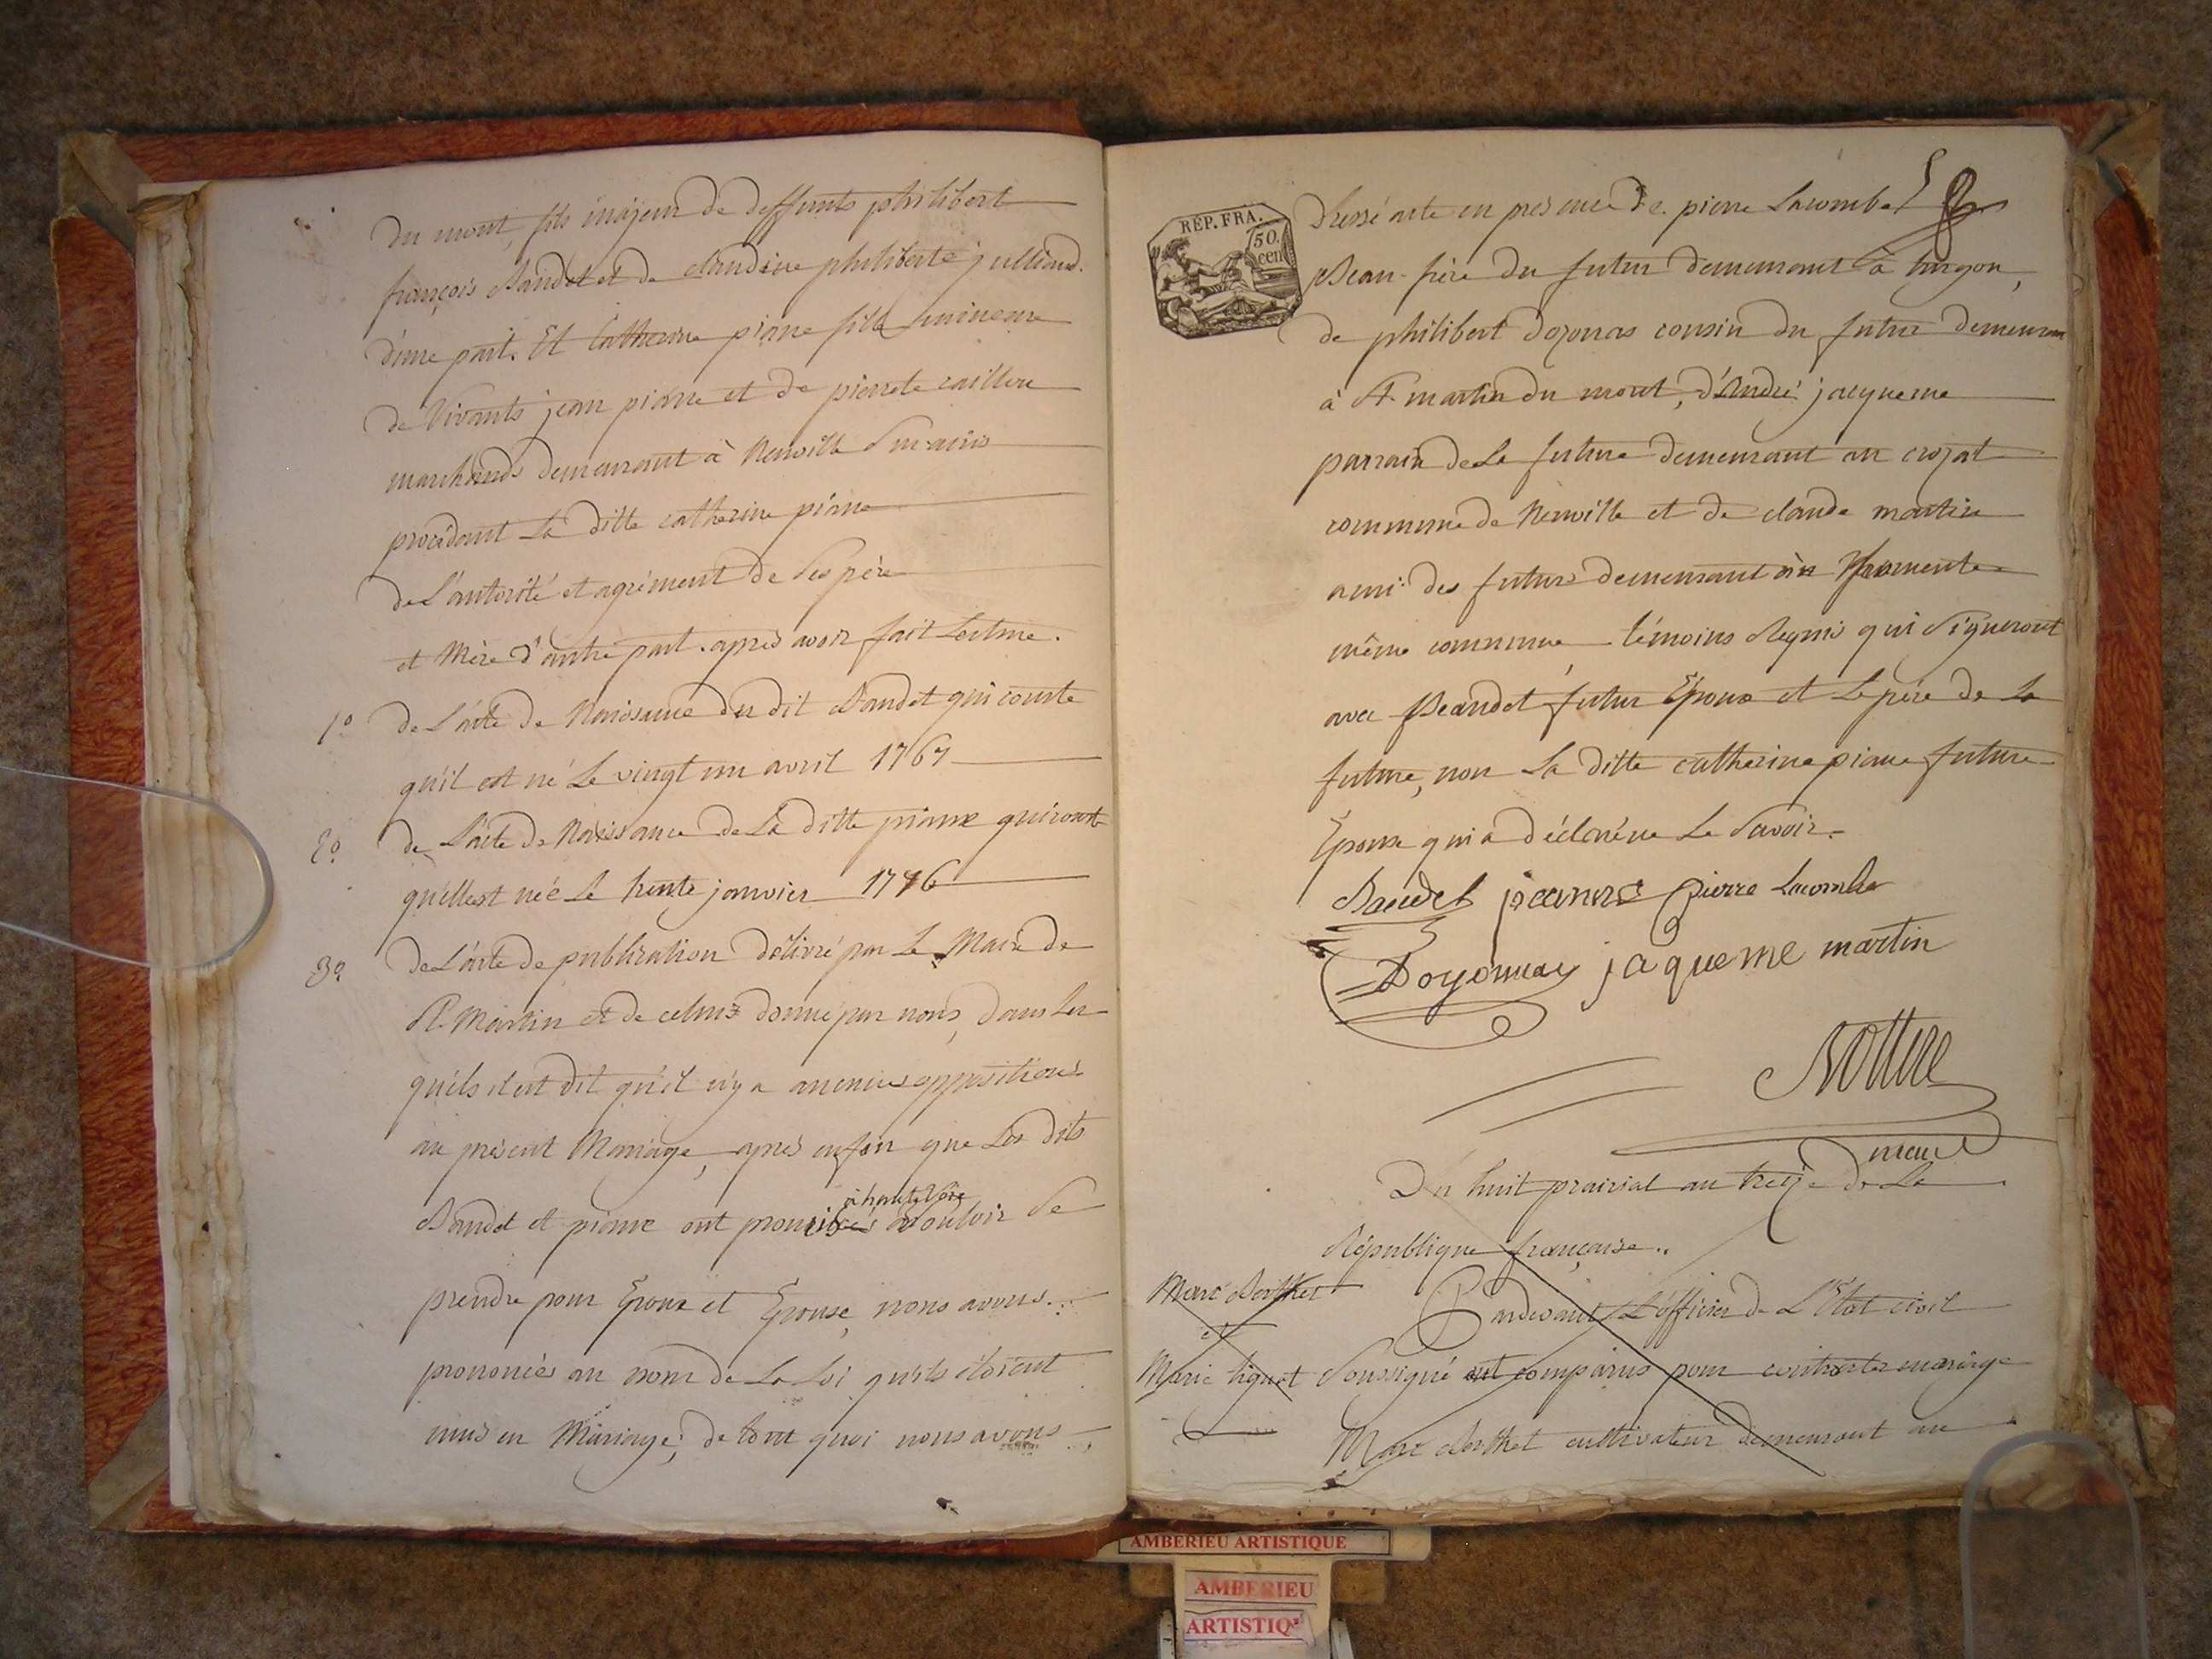 du mont, fils majeur de deffunts philibert
françois Baudet et de claudine philiberte julliard.
d'une part. Et Catherine pianne fille mineure
de Vivants jean pianne et de pierrete caillou
marchands demeurant à Neuville Sur ains
procédant La ditte catherine pianne
de L'autorité et agrément de Ses père
et Mère d'autre part. après avoir fait Lecture.
1º de L'acte de Naissance du dit Baudet qui conste
qu'il est né Le vingt un avril 1767
2º de L'acte de Naissance de La ditte pianne qui conste
qu'elle est née Le trente janvier 1786
3º de L'acte de publication délivré par Le Maire de
St. Martin et de celui donné par nous, dans Les
quels il est dit qu'il n'y a aucunes oppositions
au présent Mariage, après enfin que Les dits
à haute Voix
Baudet et pianne ont Vouloir Se
prendre pour Epoux et Epouse, nous avons
prononcés au nom de La Loi qu'ils étoient
unis en Mariage; de tout quoi nous avons
REP. FRA.
50.
cen
dressé acte en presence de pierre Lacombe
Beau-frère du futur demeurant à turgon,
de philibert doyonnas cousin du futur demeurant
à St. martin du mont, d'André jacqueme
parrain de La future demeurant au crozat
commune de Neuville et de claude martin
ami des futurs demeurant à fromente
même commune témoins Requis qui Signeront
avec Beaudet futur Epoux et Le père de La
future, non La ditte catherine piane future
Epouse qui a déclaré ne Le Savoir.
Baudet pieanne Pierre Lacombe
Doyonnax jaqueme martin
maire
Du huit prairial an treize de La
République française.
Marc Berthet
et
Marie tiquet
Pardevant L'officier de L'Etat civil
Soussigné ont comparus pour contracter mariage
Marc Berthet cultivateur demeurant au
AMBERIEU ARTISTIQUE
AMBERIEU
ARTISTIQ